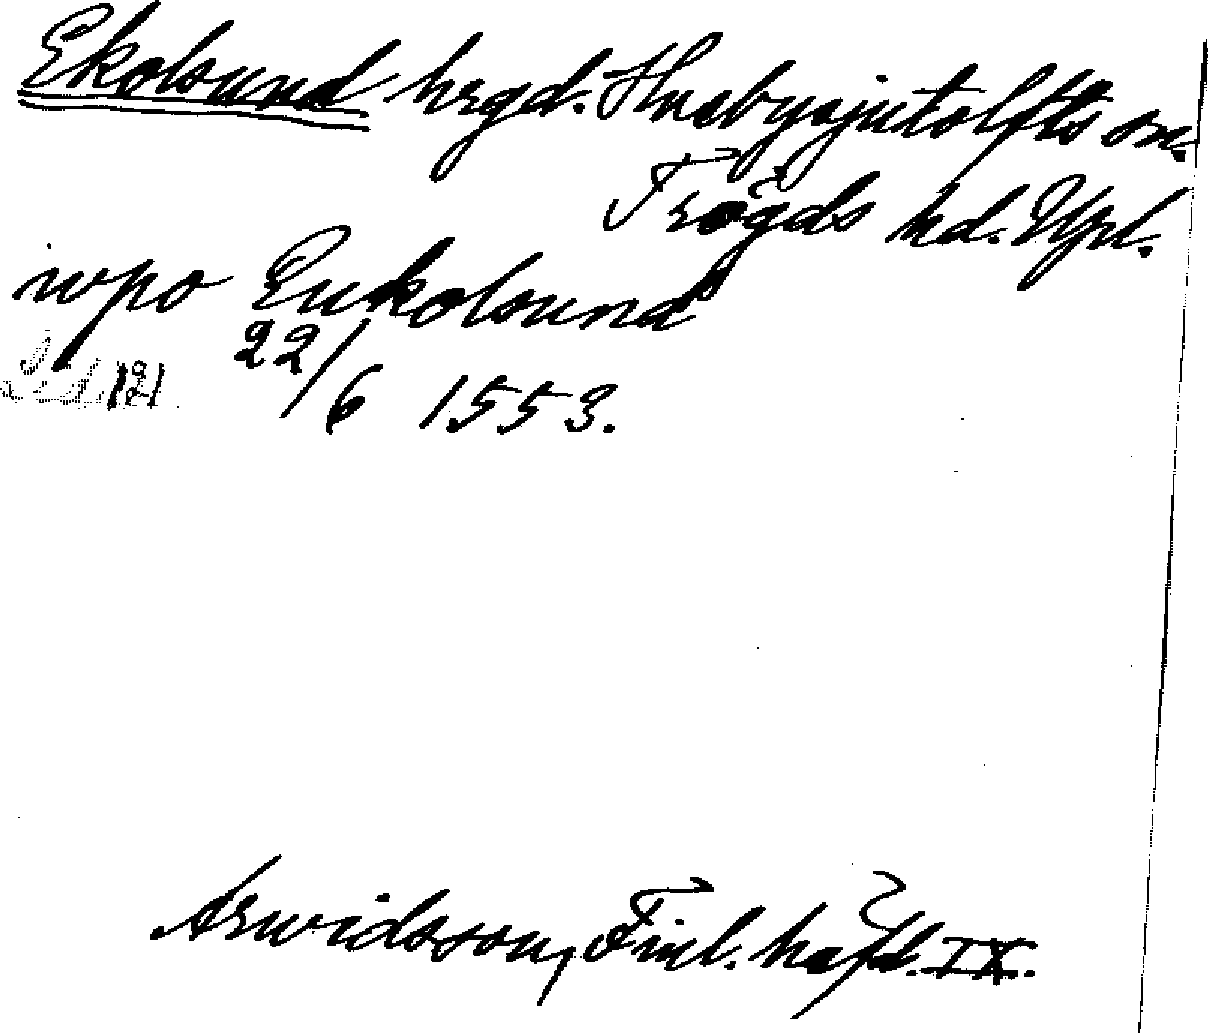 Ekolsund hrgd. Husbysjutolfts sn.
Trögds hd. Upl.
wpo Eukolsund
22/6 1553.
121
Arwidsson, Finl. häfd. IX.